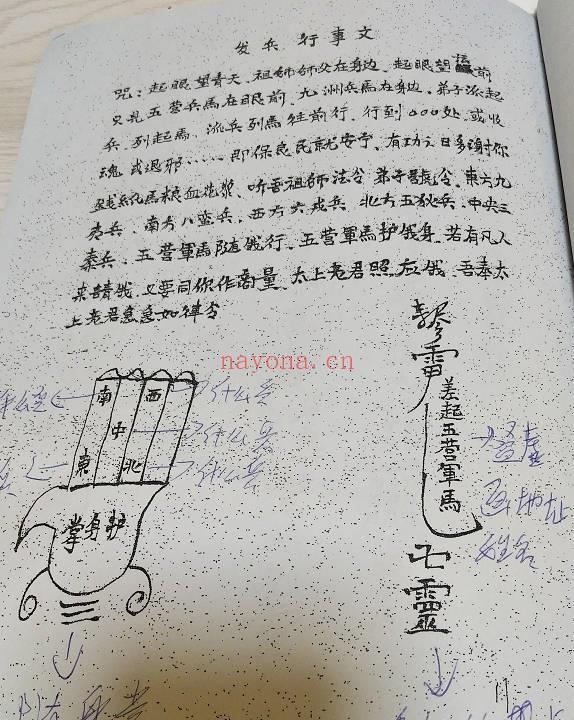 发兵行事文
咒：起眼望青天、祖师师父在身边、起眼望法前
只見五营兵馬在眼前、九洲兵馬在身边、弟子派起
兵、列起馬、派兵列馬往前行、行到000处、或收
魂或退邪……即保良民就安宁、有功之日多謝你
錢纸馬粮血花漿、听吾祖师法令弟子號令、東方九
夷兵、南方八蛮兵、西方六戎兵北方五狄兵、中央三
秦兵、五营軍馬随俄行、五营軍馬护俄身、若有凡人
来請俄、又要同你作商量、太上老君照应俄、吾奉太
上老君急急如律令
nayona.cn
南 西
中
東 北
什么兵
什么兵
什么兵
护身掌
三
雷
差起五营軍馬
靈
地址
姓名
11